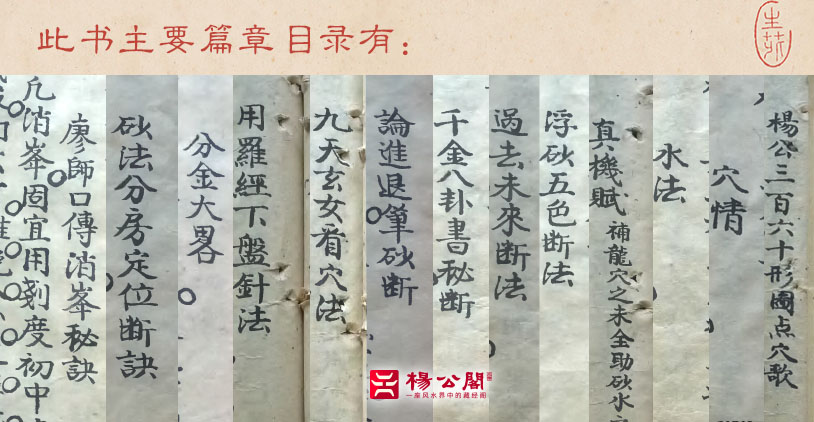 此书主要篇章目录有：
楊公三百六十形圖点穴歌
穴情
水法
真機賦 補龍穴之未全助砂水
浮砂五色断法
過去未來断法
千金八卦書秘断
論進退筆砂断
九天玄女看穴法
用羅經下盤針法
分金大畧
砂法分房定位断訣
廖師口傳消峯秘訣
凡消峯固宜用刻度初中
楊公閣
一座风水界中的藏经阁